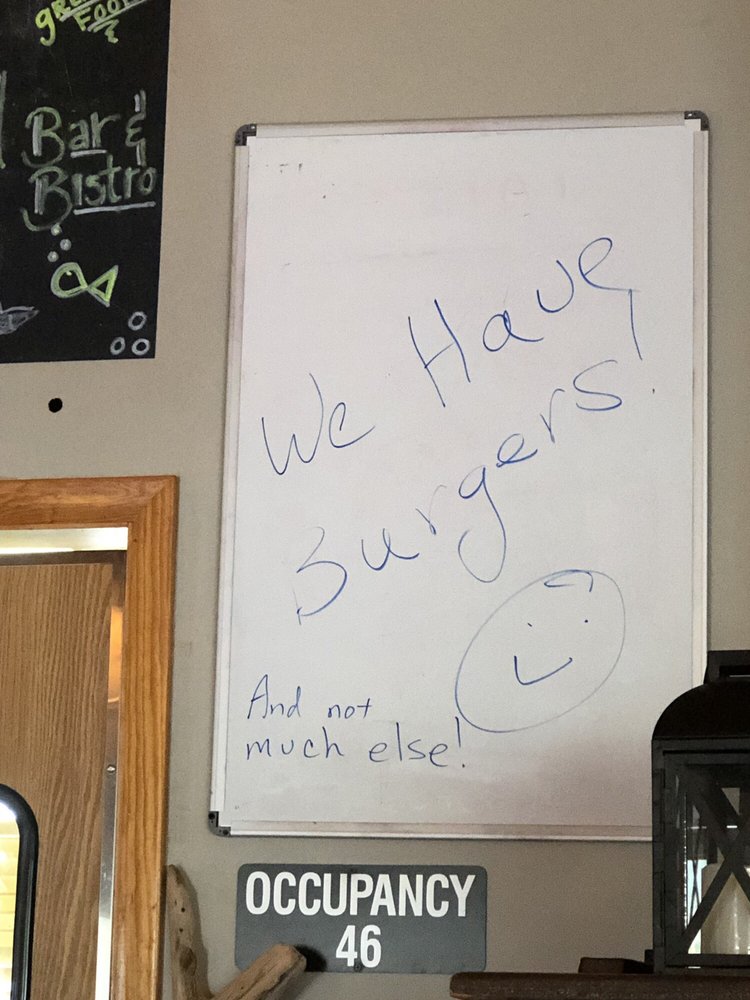 Bar &
Bistro
We Have
Burgers!
And not
much else!
OCCUPANCY
46